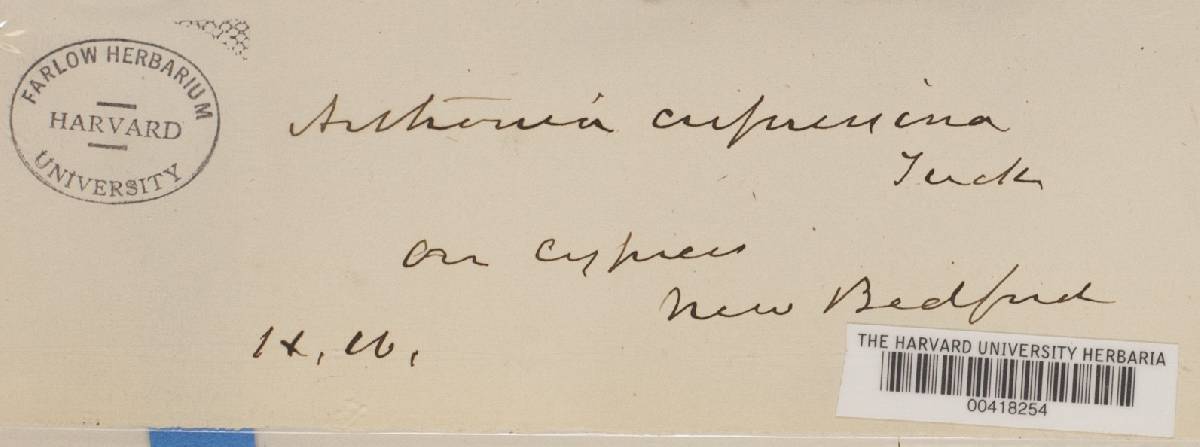 FARLOW HERBARIUM
HARVARD
UNIVERSITY
Arthonia cupressina
Tuck
on cypress
New Bedford
H. W.
THE HARVARD UNIVERSITY HERBARIA
00418254